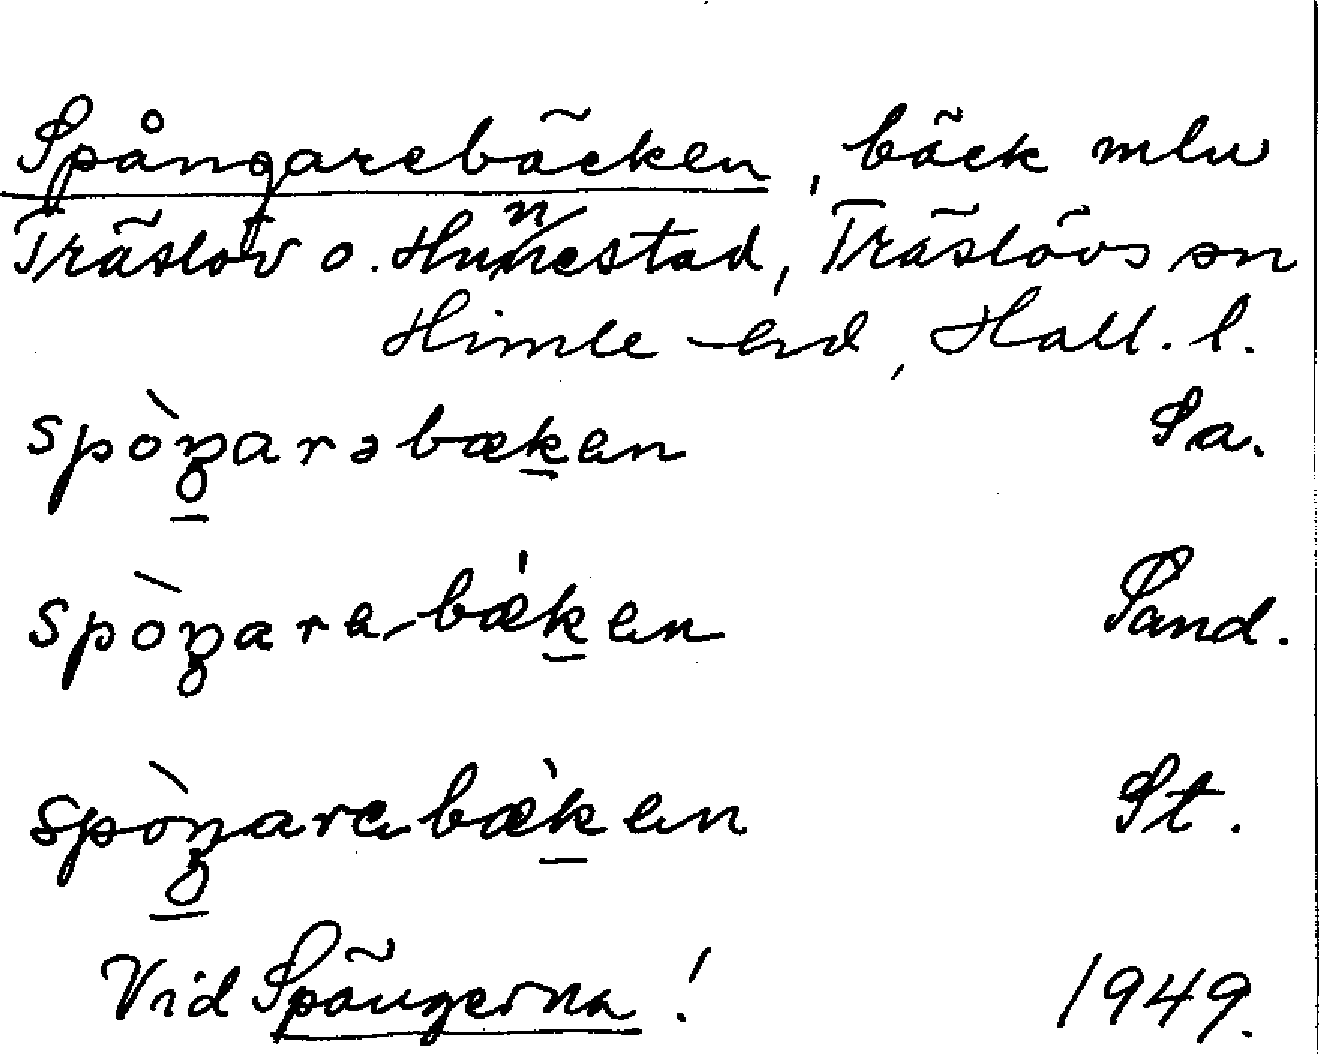 Spångarebäcken, bäck mlu
Träslöv o. Hunnestad, Träslövs sn
Himle hd, Hall. l.
spòŋarəbæken Sa.
spòŋare-bǽken Sand.
spòŋarebæ̀ken St.
Vid Spängerna! 1949.